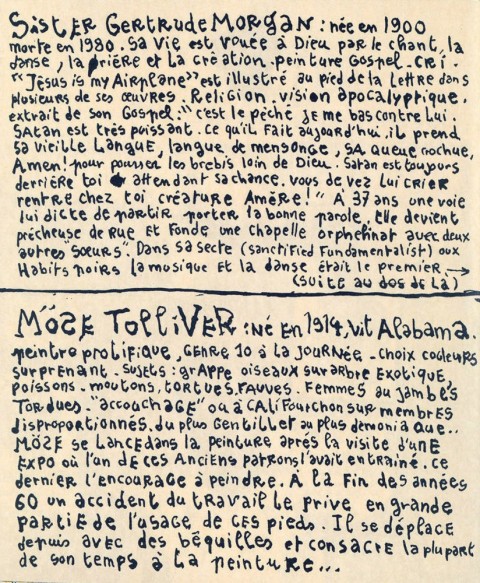 SiSTER GERTRUDE MORGAN : née en 1900
morte en 1980. Sa vie est vouée à Dieu par le chant, la
danse, la prière et la création. peinture Gospel. CRI.
"Jesus is my Airplane" est illustré au pied de la lettre dans
plusieurs de ses œuvres. Religion. vision apocalyptique.
extrait de son Gospel : "c'est le péché je me bas contre lui.
SAtan est très poissant. ce qu'il fait aujourd'hui. il prend
sa vieille Langue, langue de mensonge, SA queue
Amen! pour pousser les brebis loin de Dieu. Satan est toujours
derrière toi attendant sa chance. vous devez lui CRIER
rentre chez toi créature Amère!" A 37 ans une voie
lui dicte de partir porter la bonne parole. Elle devient
précheuse de RUE et Fonde une chapelle orphelinat avec deux
autres "Sœurs". Dans sa secte (sanctified Fundamentalist) aux
Habits noirs la musique et la danse était le premier →
(suite au dos de la)
MÖSE TOLLIVER : NÉ EN 1914, vit Alabama.
peintre prolifique, GENRE 10 à la JOURNÉE - choix couleurs
surprenant - sujets : grAppe oiseaux sur arbre Exotique,
poissons - moutons, tortues, FAUVES. Femmes au jambes
TORDUES - "accouchage" ou à CALIFourchon sur membres
disproportionnés. du plus Gentillet au plus demoniaque..
MÖZE se LANCE dans la peinture aprés la visite d'UNE
EXPO où l'un de ces Anciens patrons l'avait entrainé. ce
dernier l'encourage à peindre. À la Fin des années
60 un accident du travail le prive en grande
partie de l'usage de CES pieds. Il se déplace
depuis avec des béquilles et consacre la plupart
de son temps à la peinture...